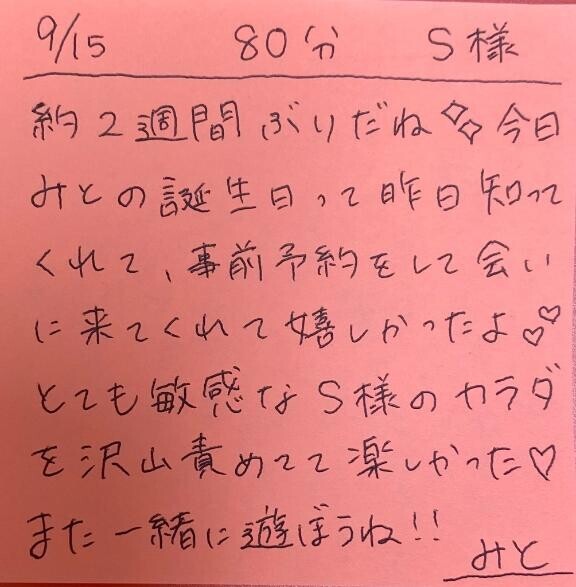 9/15 80分 S様
約2週間ぶりだね✧✧今日
みとの誕生日って昨日知って
くれて、事前予約をして会い
に来てくれて嬉しかったよ♡♡
とても敏感なS様のカラダ
を沢山責めてて楽しかった♡
また一緒に遊ぼうね!!
みと